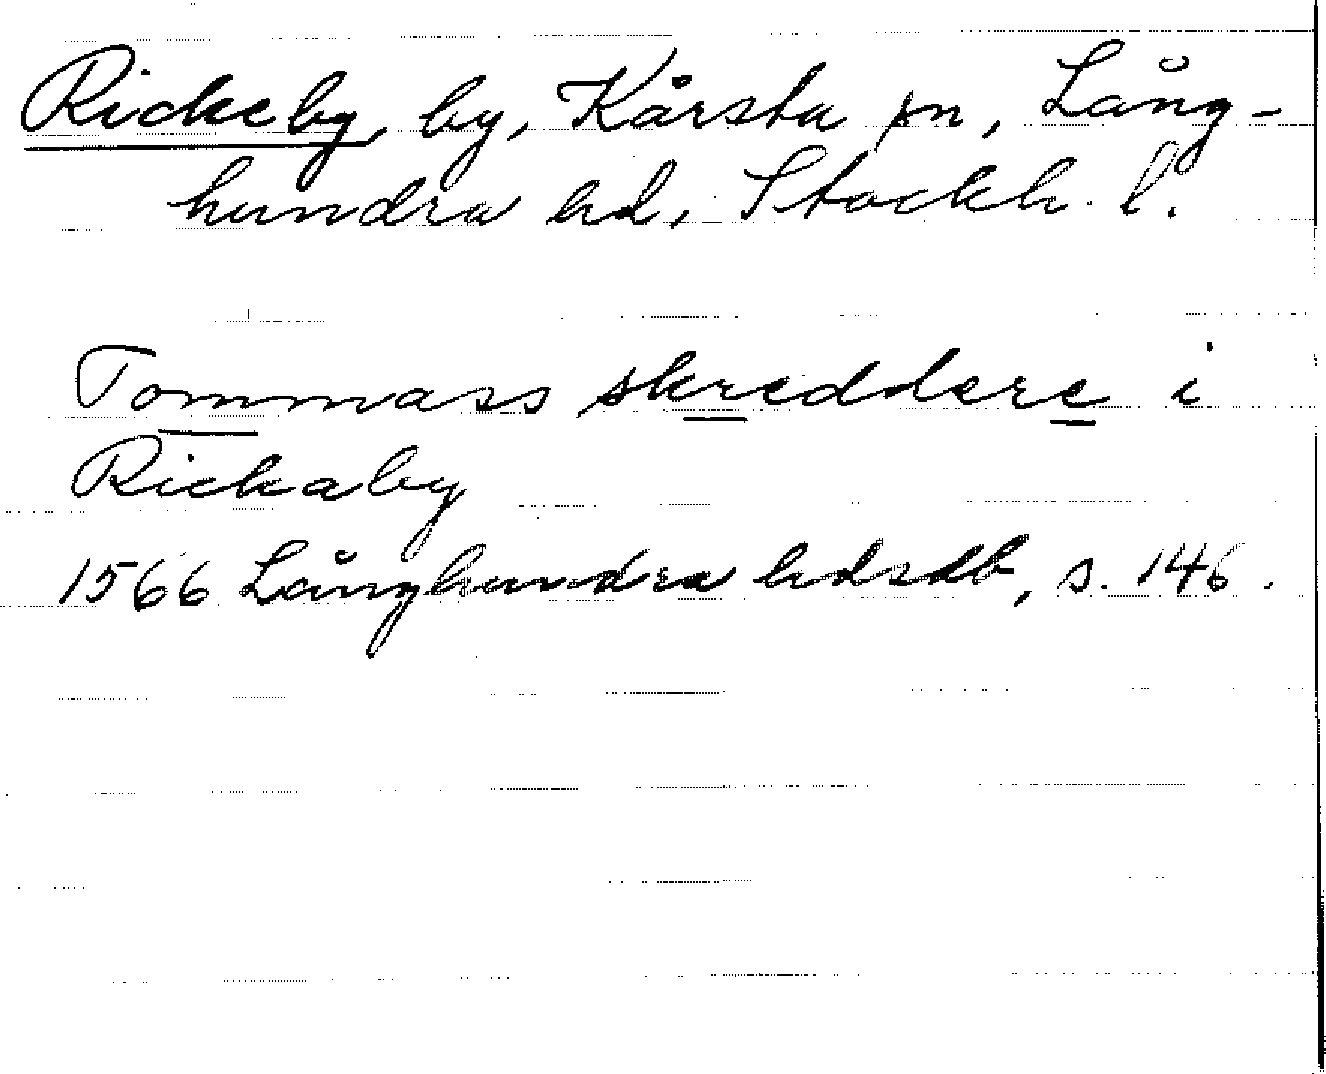 Rickeby, by, Kårsta sn, Lång-
hundra hd, Stockh. l.
Tommass skreddere i
Rickaby
1566 Långhundra hdsdb, s. 146.